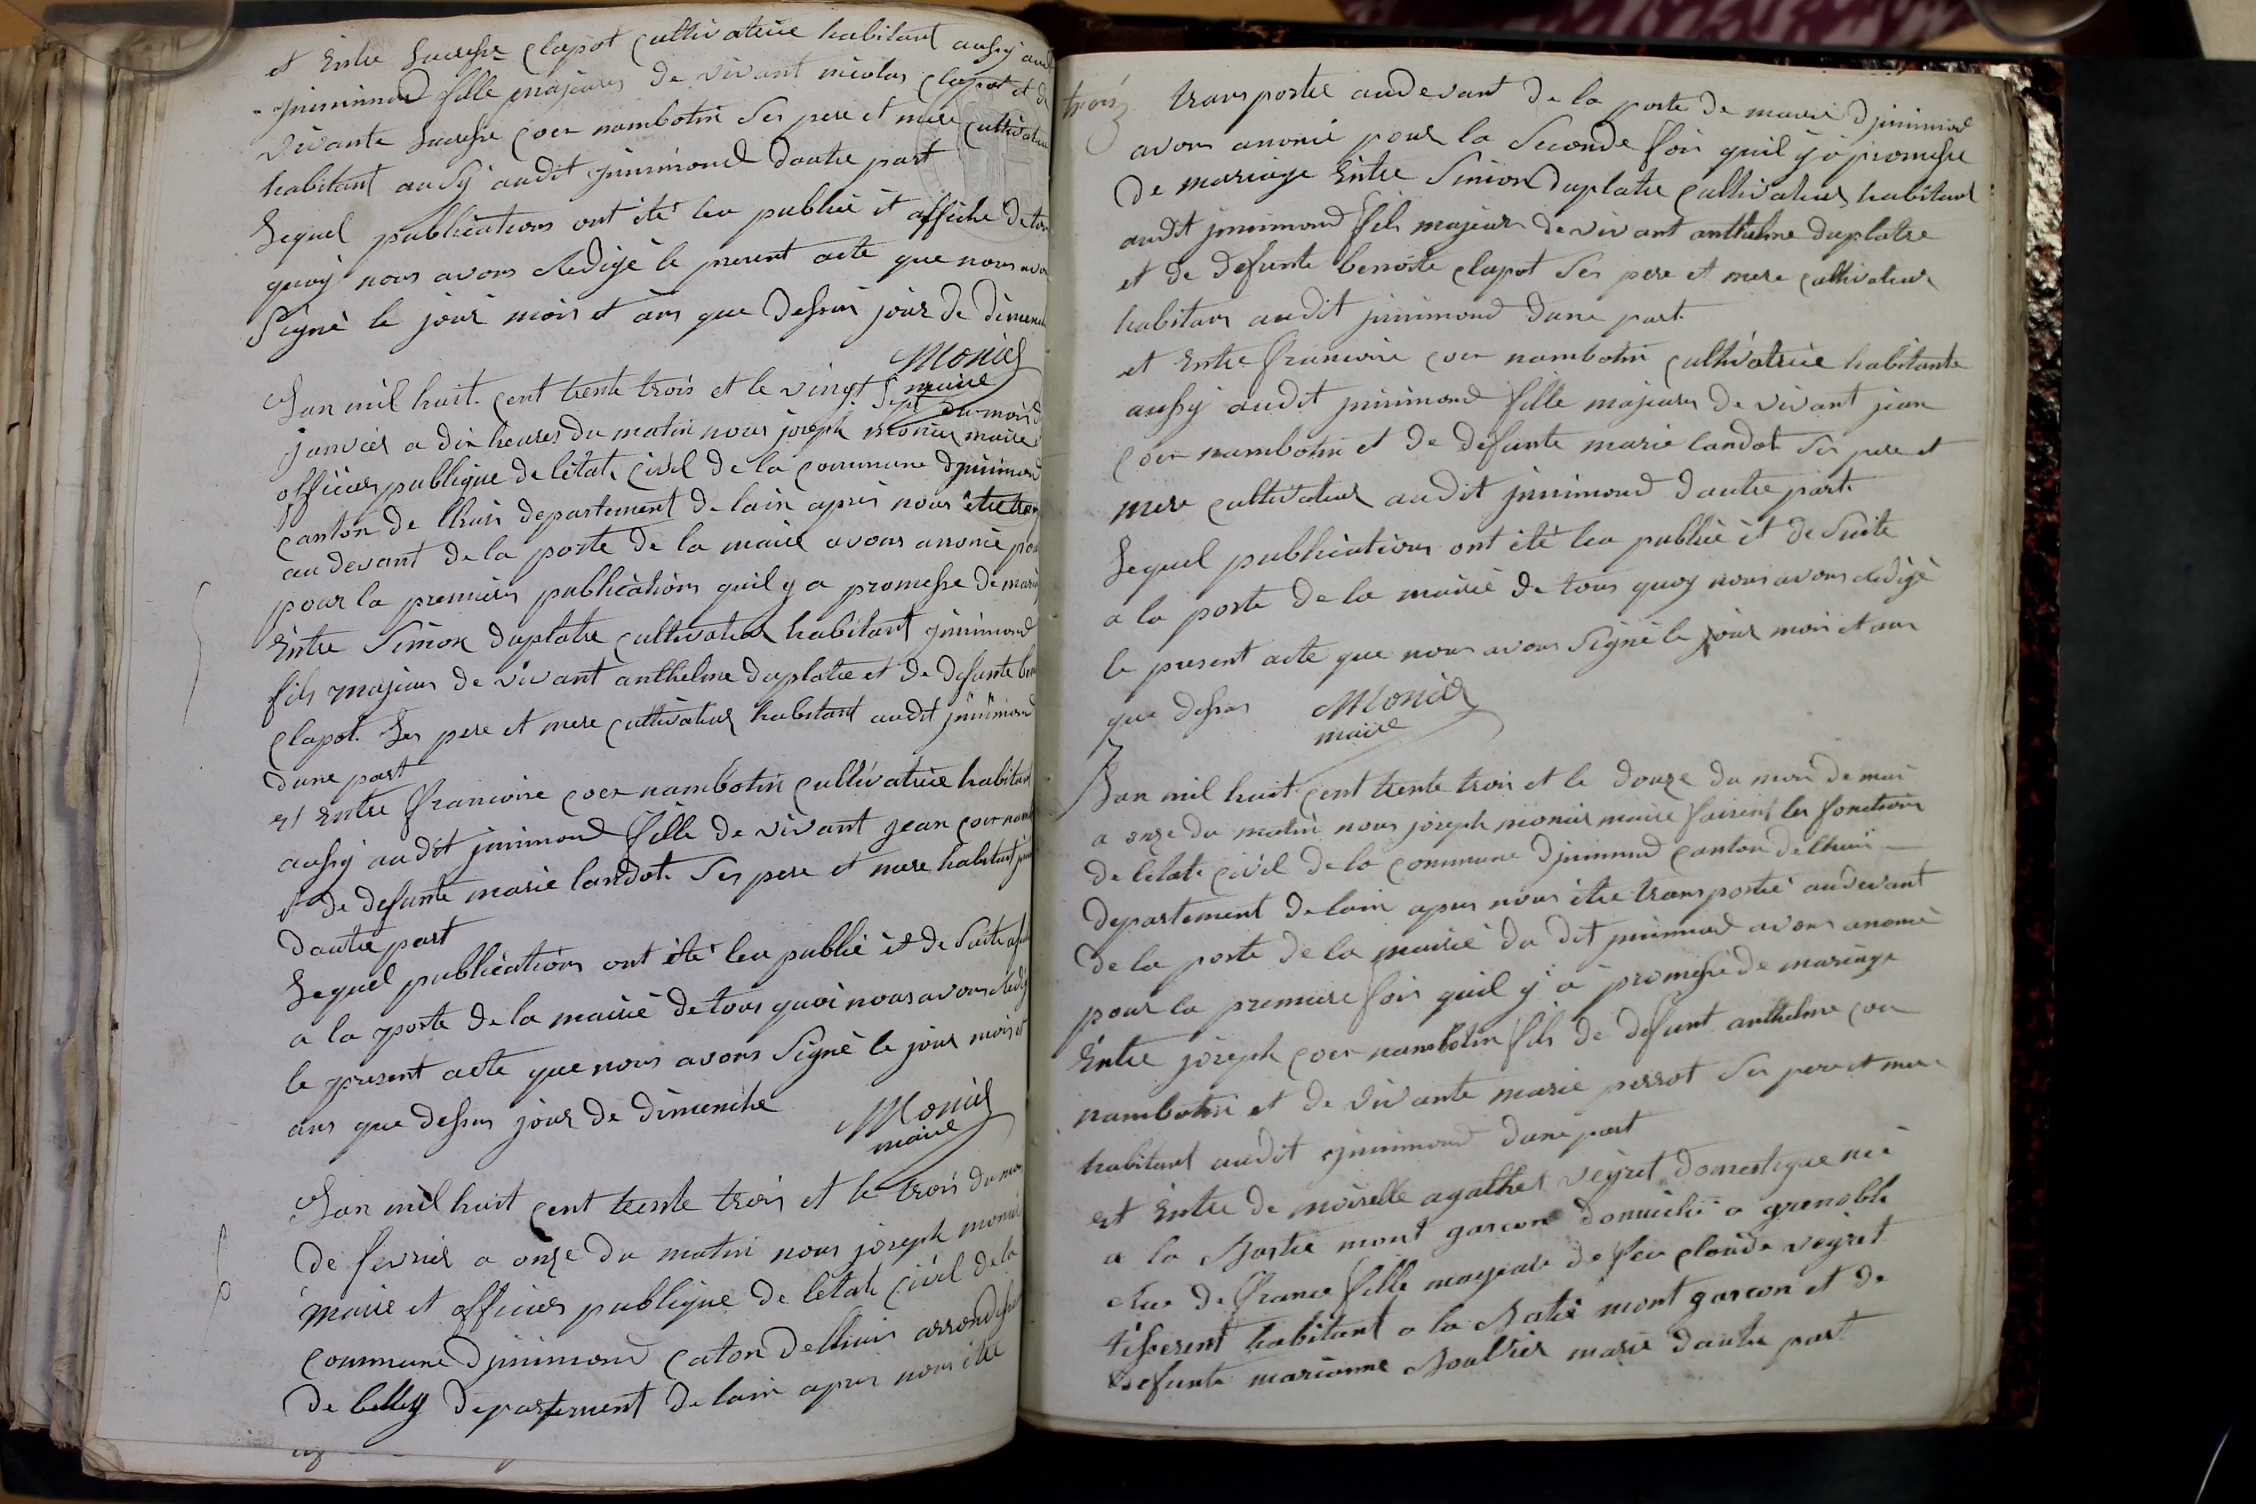 et Entre Lucresse Clapot Cultivatrice habitant aussy aud
jnnimond fille majeures de vivant nicolas Clapot et de
vivante Lucresse Coer nambotin Ses pere et mere Cultivateur
habitant aussy audit jnnimond dautre part
Lequel publications ont été leu publiée et affiché de tou
quoy nous avons Redigé le present acte que nous avon
Signé le jour mois et ans que Dessus jour de dimanche
Monier
maire
Lan mil huit Cent trente trois et le vingt Sept du mois d
janvier a dix heures du matin nous joseph monier maire
officier publique de létat Civil de la Commune djnnimond
Canton de lhuis departement de lain apres nous être tran
au devant de la porte de la mairie avons anoncé pou
pour la premiere publications quil y a promesse de maria
Entre Simon duplatre Cultivateur habitant jnnimond
fils majeur de vivant anthelme duplatre et de defunte ben
Clapot Ses pere et mere Cultivateur habitant audit jnnimond
dune part
et Entre francoise Coer nambotin Cultivatrice habitant
aussy audit jnnimond fille de vivant jean Coer nam
et de defunte marie landot Ses pere et mere habitant jnni
dautre part
Lequel publications ont été leu publié et de Suite afi
a la porte de la mairie de tous quoi nous avons Redigé
le present acte que nous avons Signé le jour mois et
ans que dessus jour de dimenche
Monier
maire
Lan mil huit Cent trente trois et le trois du moi
de fevrier a onze du matin nous joseph monier
maire et officier publique de létat Civil de la
Commune djnnimond Caton de lhuis arrondisse
de belley departement de lain apres nous être
trois
transportée audevant de la porte de mairie djnnimond
avons anoncé pour la Seconde fois quil y a promesse
de mariage Entre Simon duplatre Cultivateur habitant
audit jnnimond fils majeur de vivant anthelme duplatre
et de defunte benoite Clapot Ses pere et mere Cultivateur
habitans audit jnnimond dune part
et Entre francoise Coer nambotin Cultivatrice habitante
aussy audit jnnimond fille majeures de vivant jean
Coer nambotin et de defunte marie landot Ses pere et
mere Cultivateur audit jnnimond dautre part
Lequel publications ont été leu publiée et de Suite
a la porte de la mairie de tous quoy nous avons Redigé
le present acte que nous avons Signé le jour mois et ans
que dessus
Monier
maire
Lan mil huit Cent trente trois et le douze du mois de mai
a onze du matin nous joseph monier maire faisent les fonctions
de létat Civil de la Commune djnnimond Canton de lhuis
departement de lain apres nous être transportée audevant
de la porte de la mairie du dit jnnimond avons anoncé
pour la premiere fois quil y a promesse de mariage
Entre joseph Coer nambotin fils de defunt anthelme Coer
nambotin et de vivante marie perrot Ses pere et mere
habitant audit jnnimond dune part
et Entre de moiselle agathe veyret domestique née
a la Bastie mont gascon domicilié a grenoble
Rue de france fille majeure de feu Claude veyret
tisserent habitant a la Batie mont gascon et de
defunte marianne Roullier marié dautre part